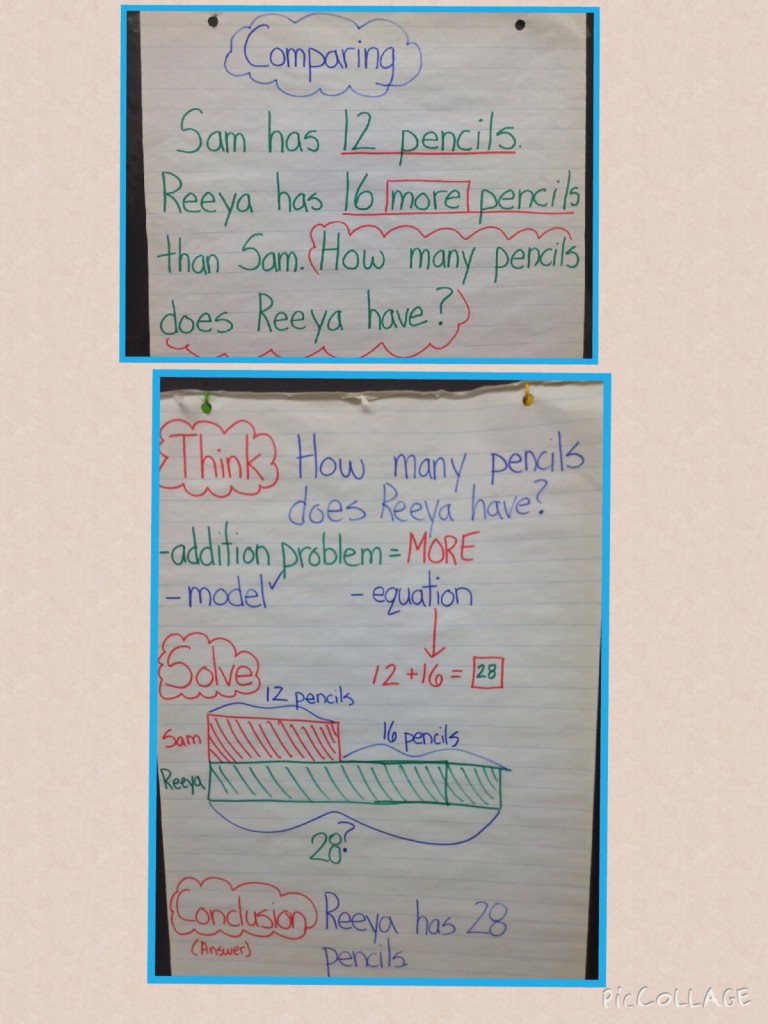 Comparing
Sam has 12 pencils.
Reeya has 16 more pencils
than Sam. How many pencils
does Reeya have?
Think How many pencils
does Reeya have?
-addition problem = MORE
- model✓ - equation
Solve 12 +16 = 28
12 pencils
Sam 16 pencils
Reeya
28?
Conclusion Reeya has 28
(Answer) pencils.
PicCOLLAGE